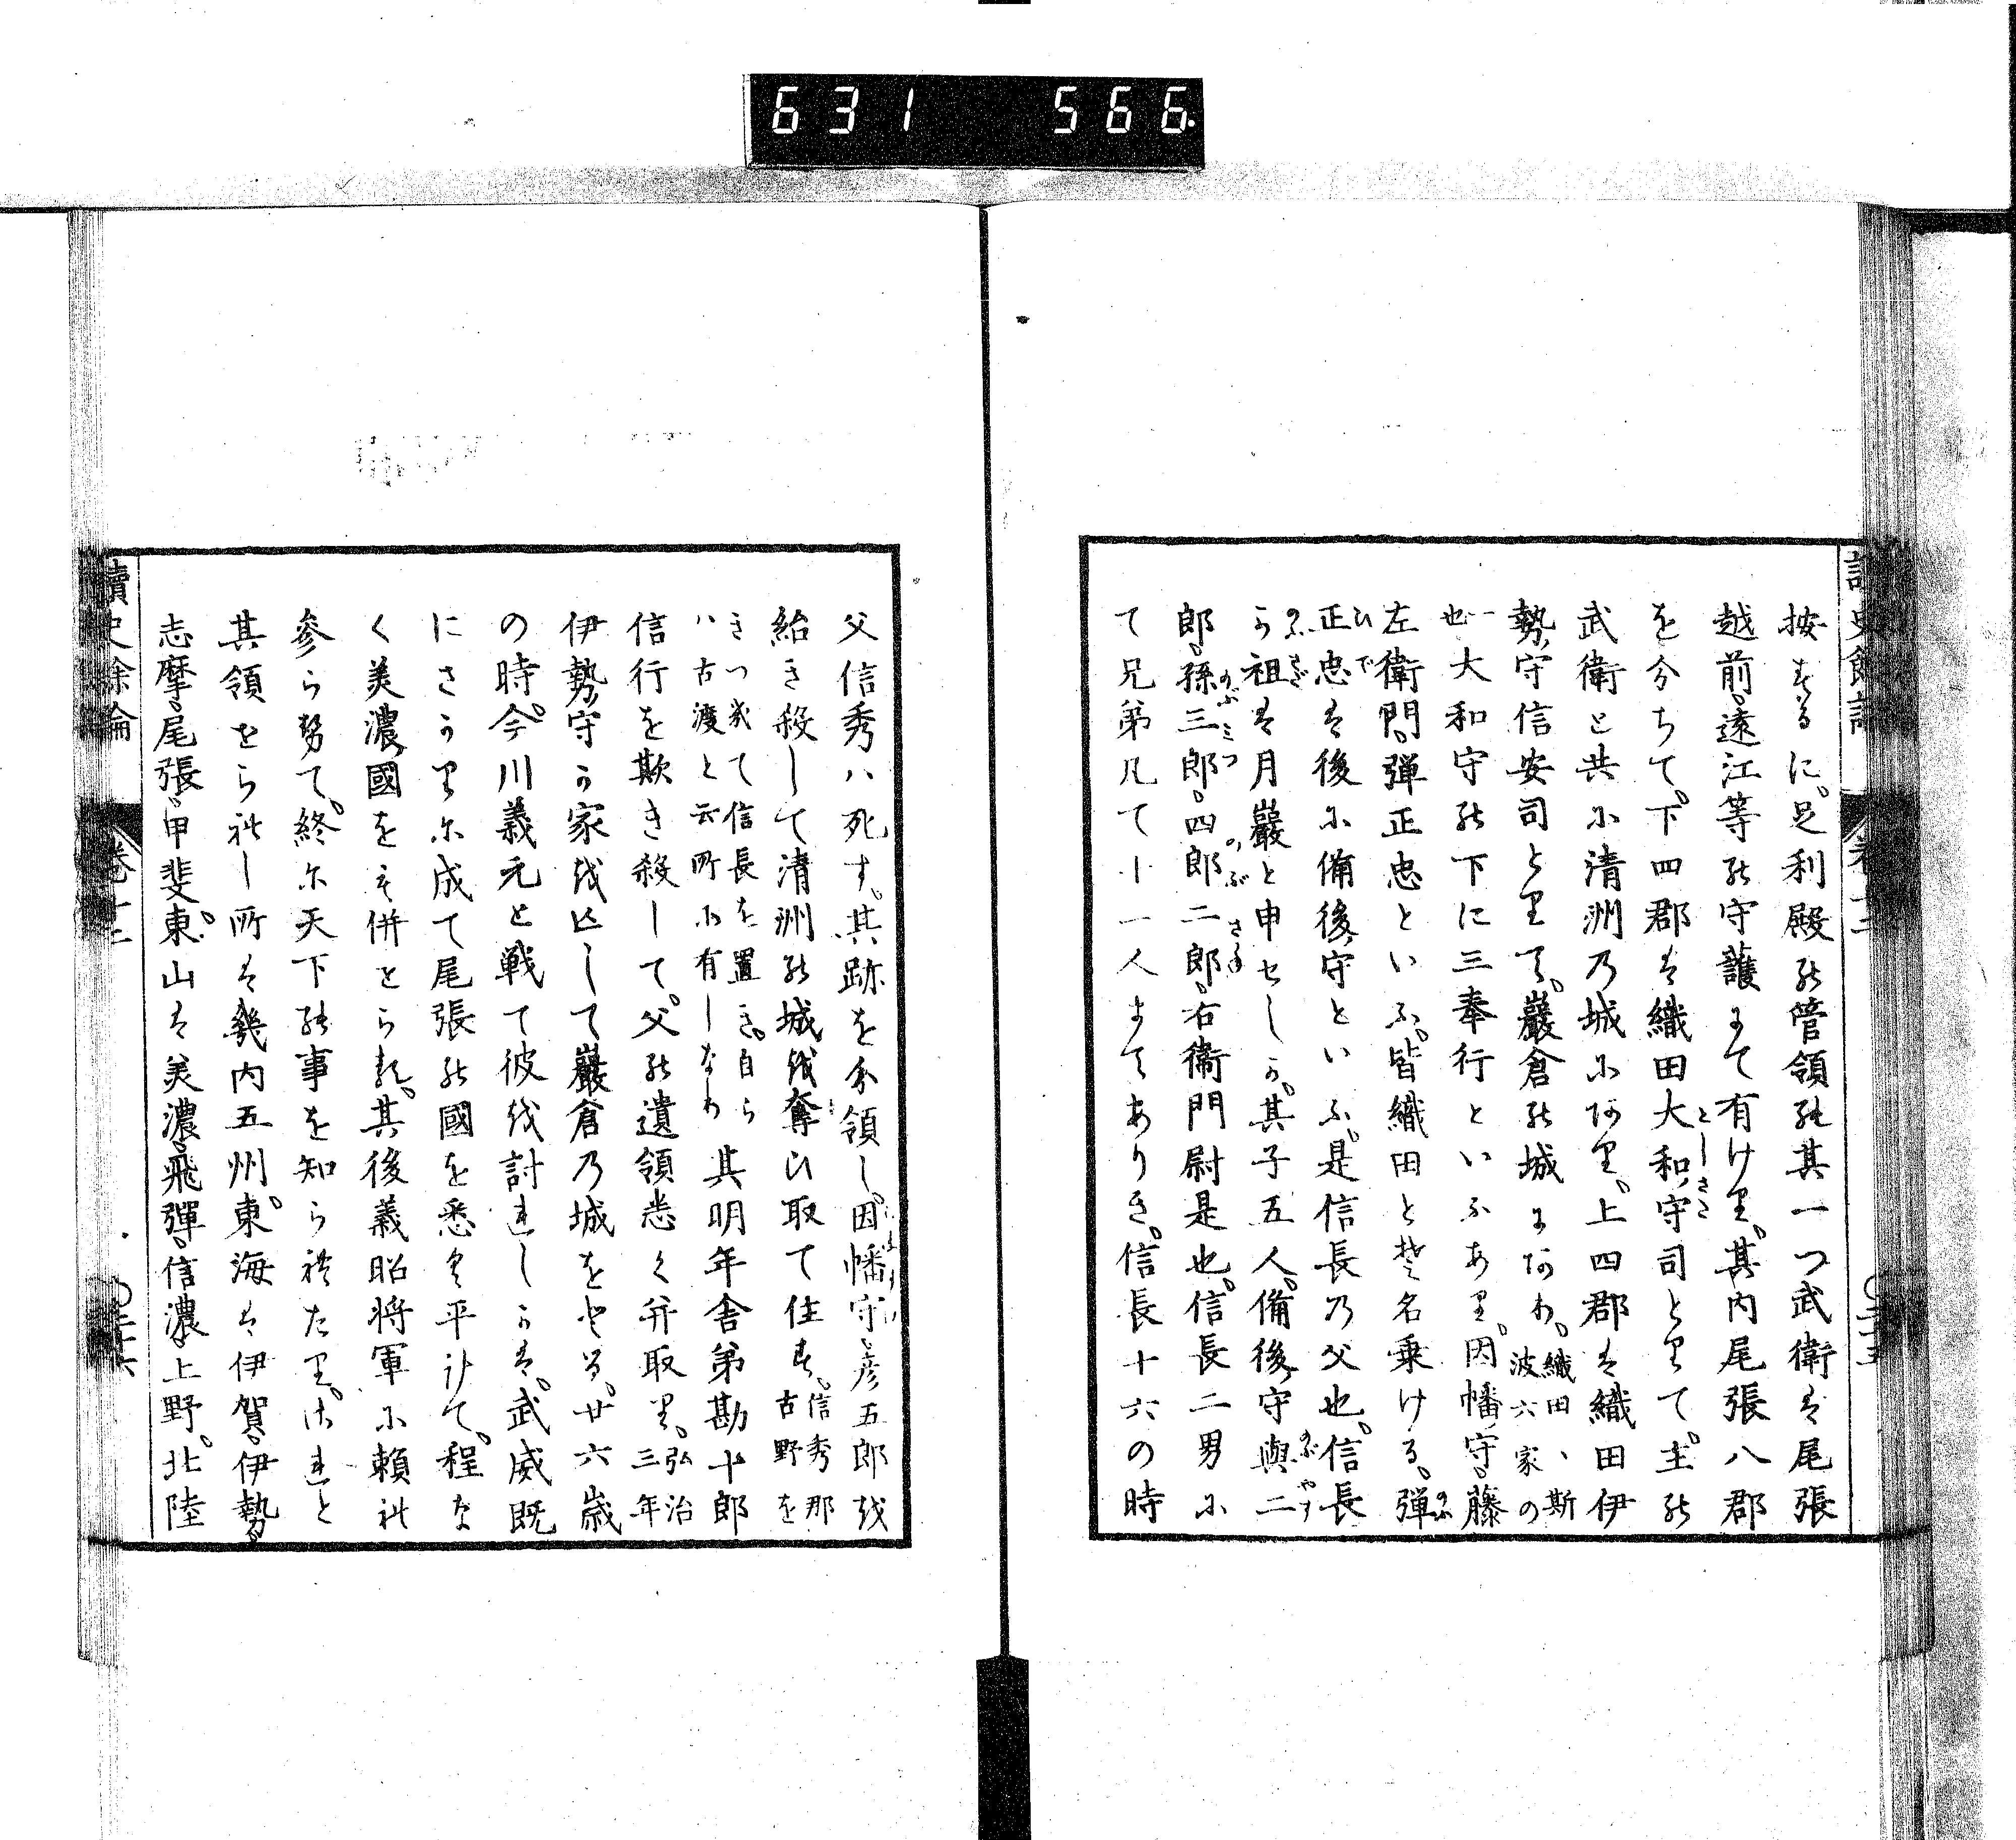 631 566
按するに。足利殿の管領の其一つ武衛は尾張
越前。遠江等の守護にて有けり。其内尾張八郡
を分ちて。下四郡は織田大和守司とりて。主の
武衛と共に清洲の城にあり。上四郡は織田伊
勢守信安司とりて。巖倉の城にあり。織田、斯波六家の一也
大和守の下に三奉行といふあり。因幡守。藤
左衛門。彈正忠といふ。皆織田とぞ名乗ける。彈
正忠は後に備後守といふ。是信長の父也。信長
の祖は月巖と申せしか。其子五人。備後守與二
郎。孫三郎。四郎二郎。右衞門尉是也。信長二男に
て兄弟凡て十一人までありき。信長十六の時
父信秀ハ死す。其跡を分領し。因幡守。彦五郎を
紿き殺して清洲の城を奪ひ取て住す。信秀那古野を
きつきて信長を置き。自らハ古渡と云所に有しなり
其明年舎弟勘十郎
信行を欺き殺して。父の遺領悉く并取り。弘治三年
伊勢守の家を亡して巖倉の城をとる。廿六歳
の時。今川義元と戰て彼を討れしかは。武威既
にさかりに成て尾張の國を悉く平けて。程な
く美濃國をも併とらる。其後義昭将軍に頼れ
参らせて。終に天下の事を知られたり。されと
其領をられし所は畿内五州。東海は伊賀。伊勢。
志摩。尾張。甲斐。東山は美濃。飛彈。信濃。上野。北陸
讀史餘論 巻十二